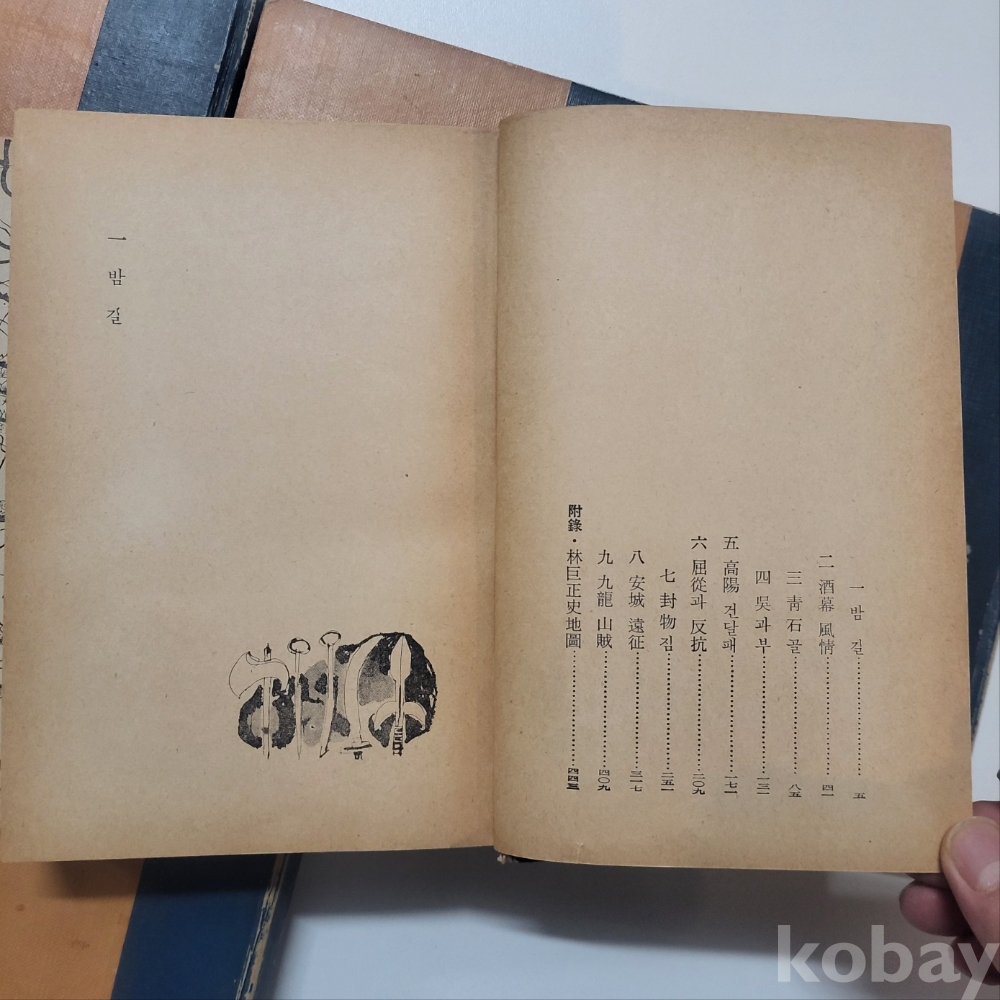 一 밤 길
二 酒幕 風情 四一
三 靑石골 八五
四 吳과부 一三一
五 高陽 건달패 一七一
六 屈從과 反抗 二〇九
七 封物짐 二五一
八 安城 遠征 三一七
九 九龍 山賊 四〇九
附錄・林巨正史地圖 四四三
一 밤 길 五
kobay